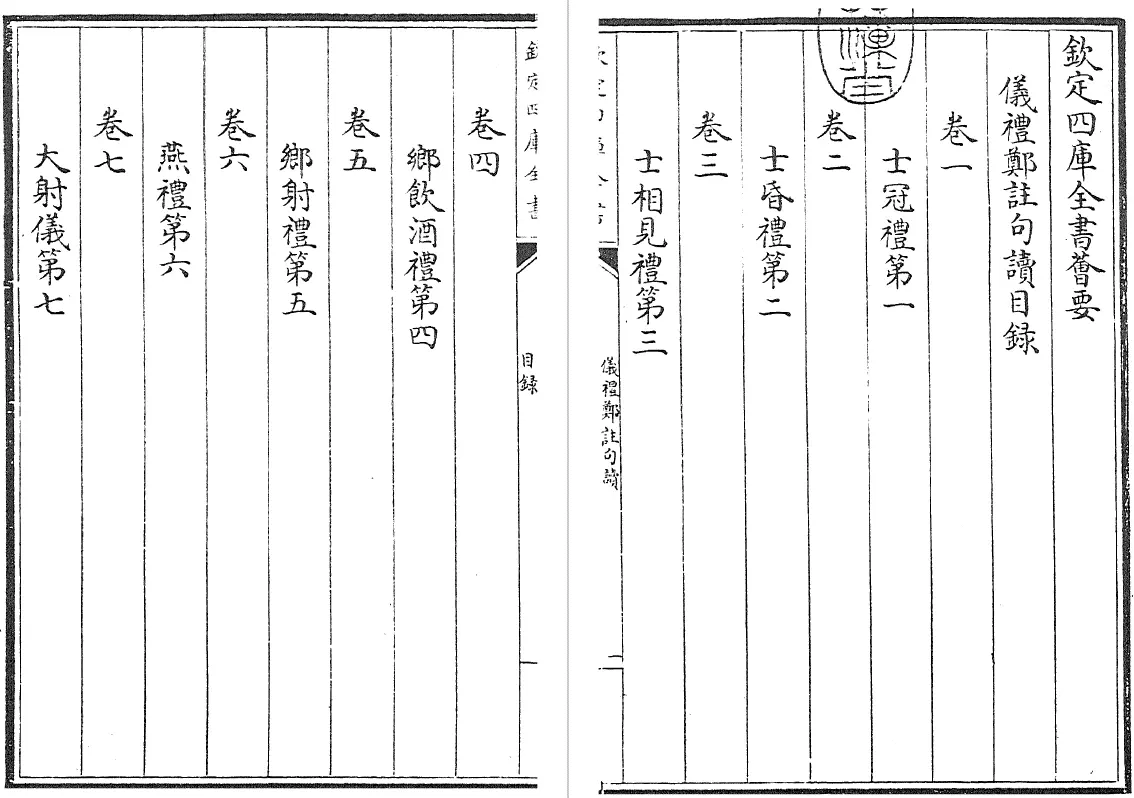 欽定四庫全書薈要
儀禮鄭註句讀目録
卷一
士冠禮第一
卷二
士昏禮第二
卷三
士相見禮第三
儀禮鄭註句讀
欽定四庫全書
目録
卷四
鄉飲酒禮第四
卷五
鄉射禮第五
卷六
燕禮第六
卷七
大射儀第七